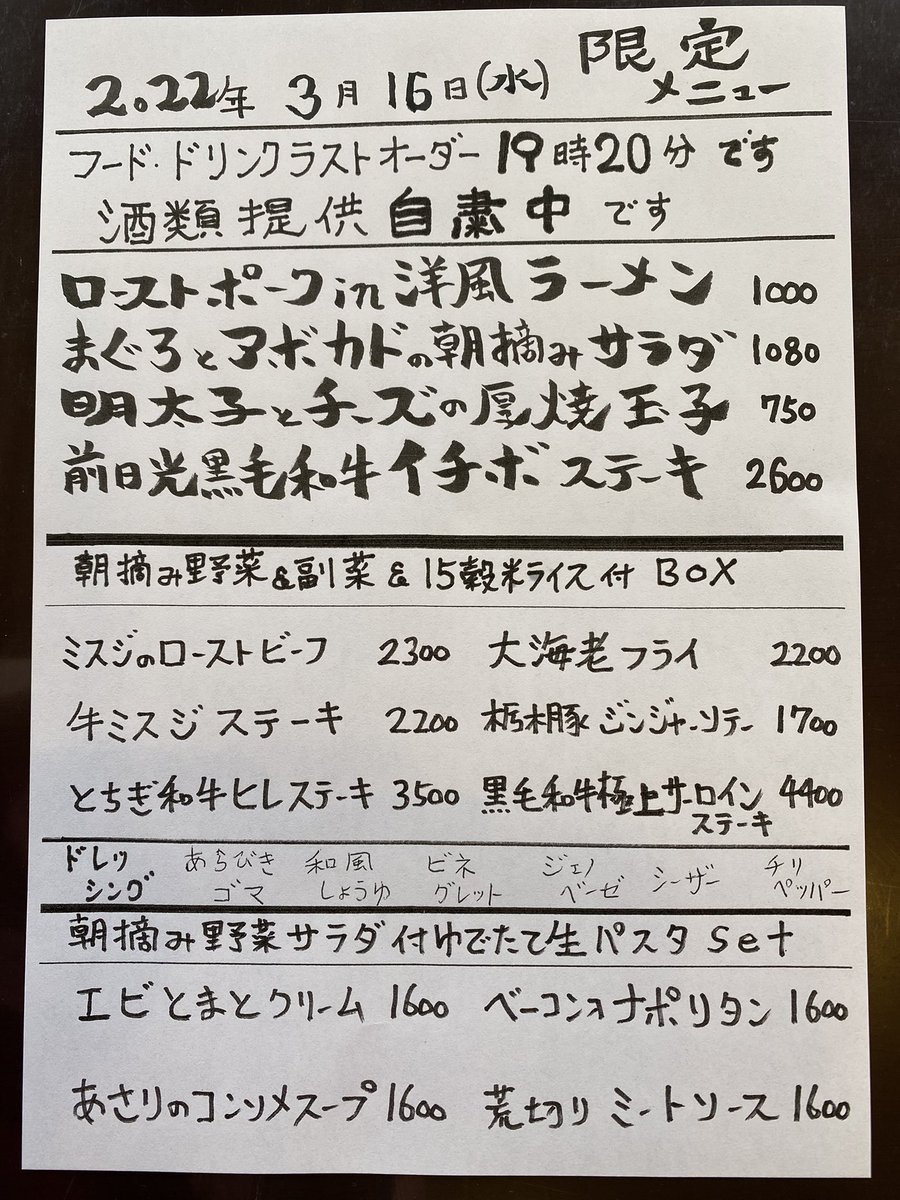 2022年 3月16日(水) 限定メニュー
フード・ドリンクラストオーダー19時20分です
酒類提供自粛中です
ローストポークin洋風ラーメン 1000
まぐろとアボカドの朝摘みサラダ 1080
明太子とチーズの厚焼玉子 750
前日光黒毛和牛イチボステーキ 2600
朝摘み野菜&副菜&15穀米ライス付 BOX
ミスジのローストビーフ 2300 大海老フライ 2200
牛ミスジステーキ 2200 栃木豚ジンジャーソテー 1700
とちぎ和牛ヒレステーキ 3500 黒毛和牛極上サーロインステーキ 4400
ドレッシング あらびきゴマ 和風しょうゆ ビネグレット ジェノベーゼ シーザー チリペッパー
朝摘み野菜サラダ付ゆでたて生パスタ Set
エビとまとクリーム 1600 ベーコンonナポリタン 1600
あさりのコンソメスープ 1600 荒切りミートソース 1600